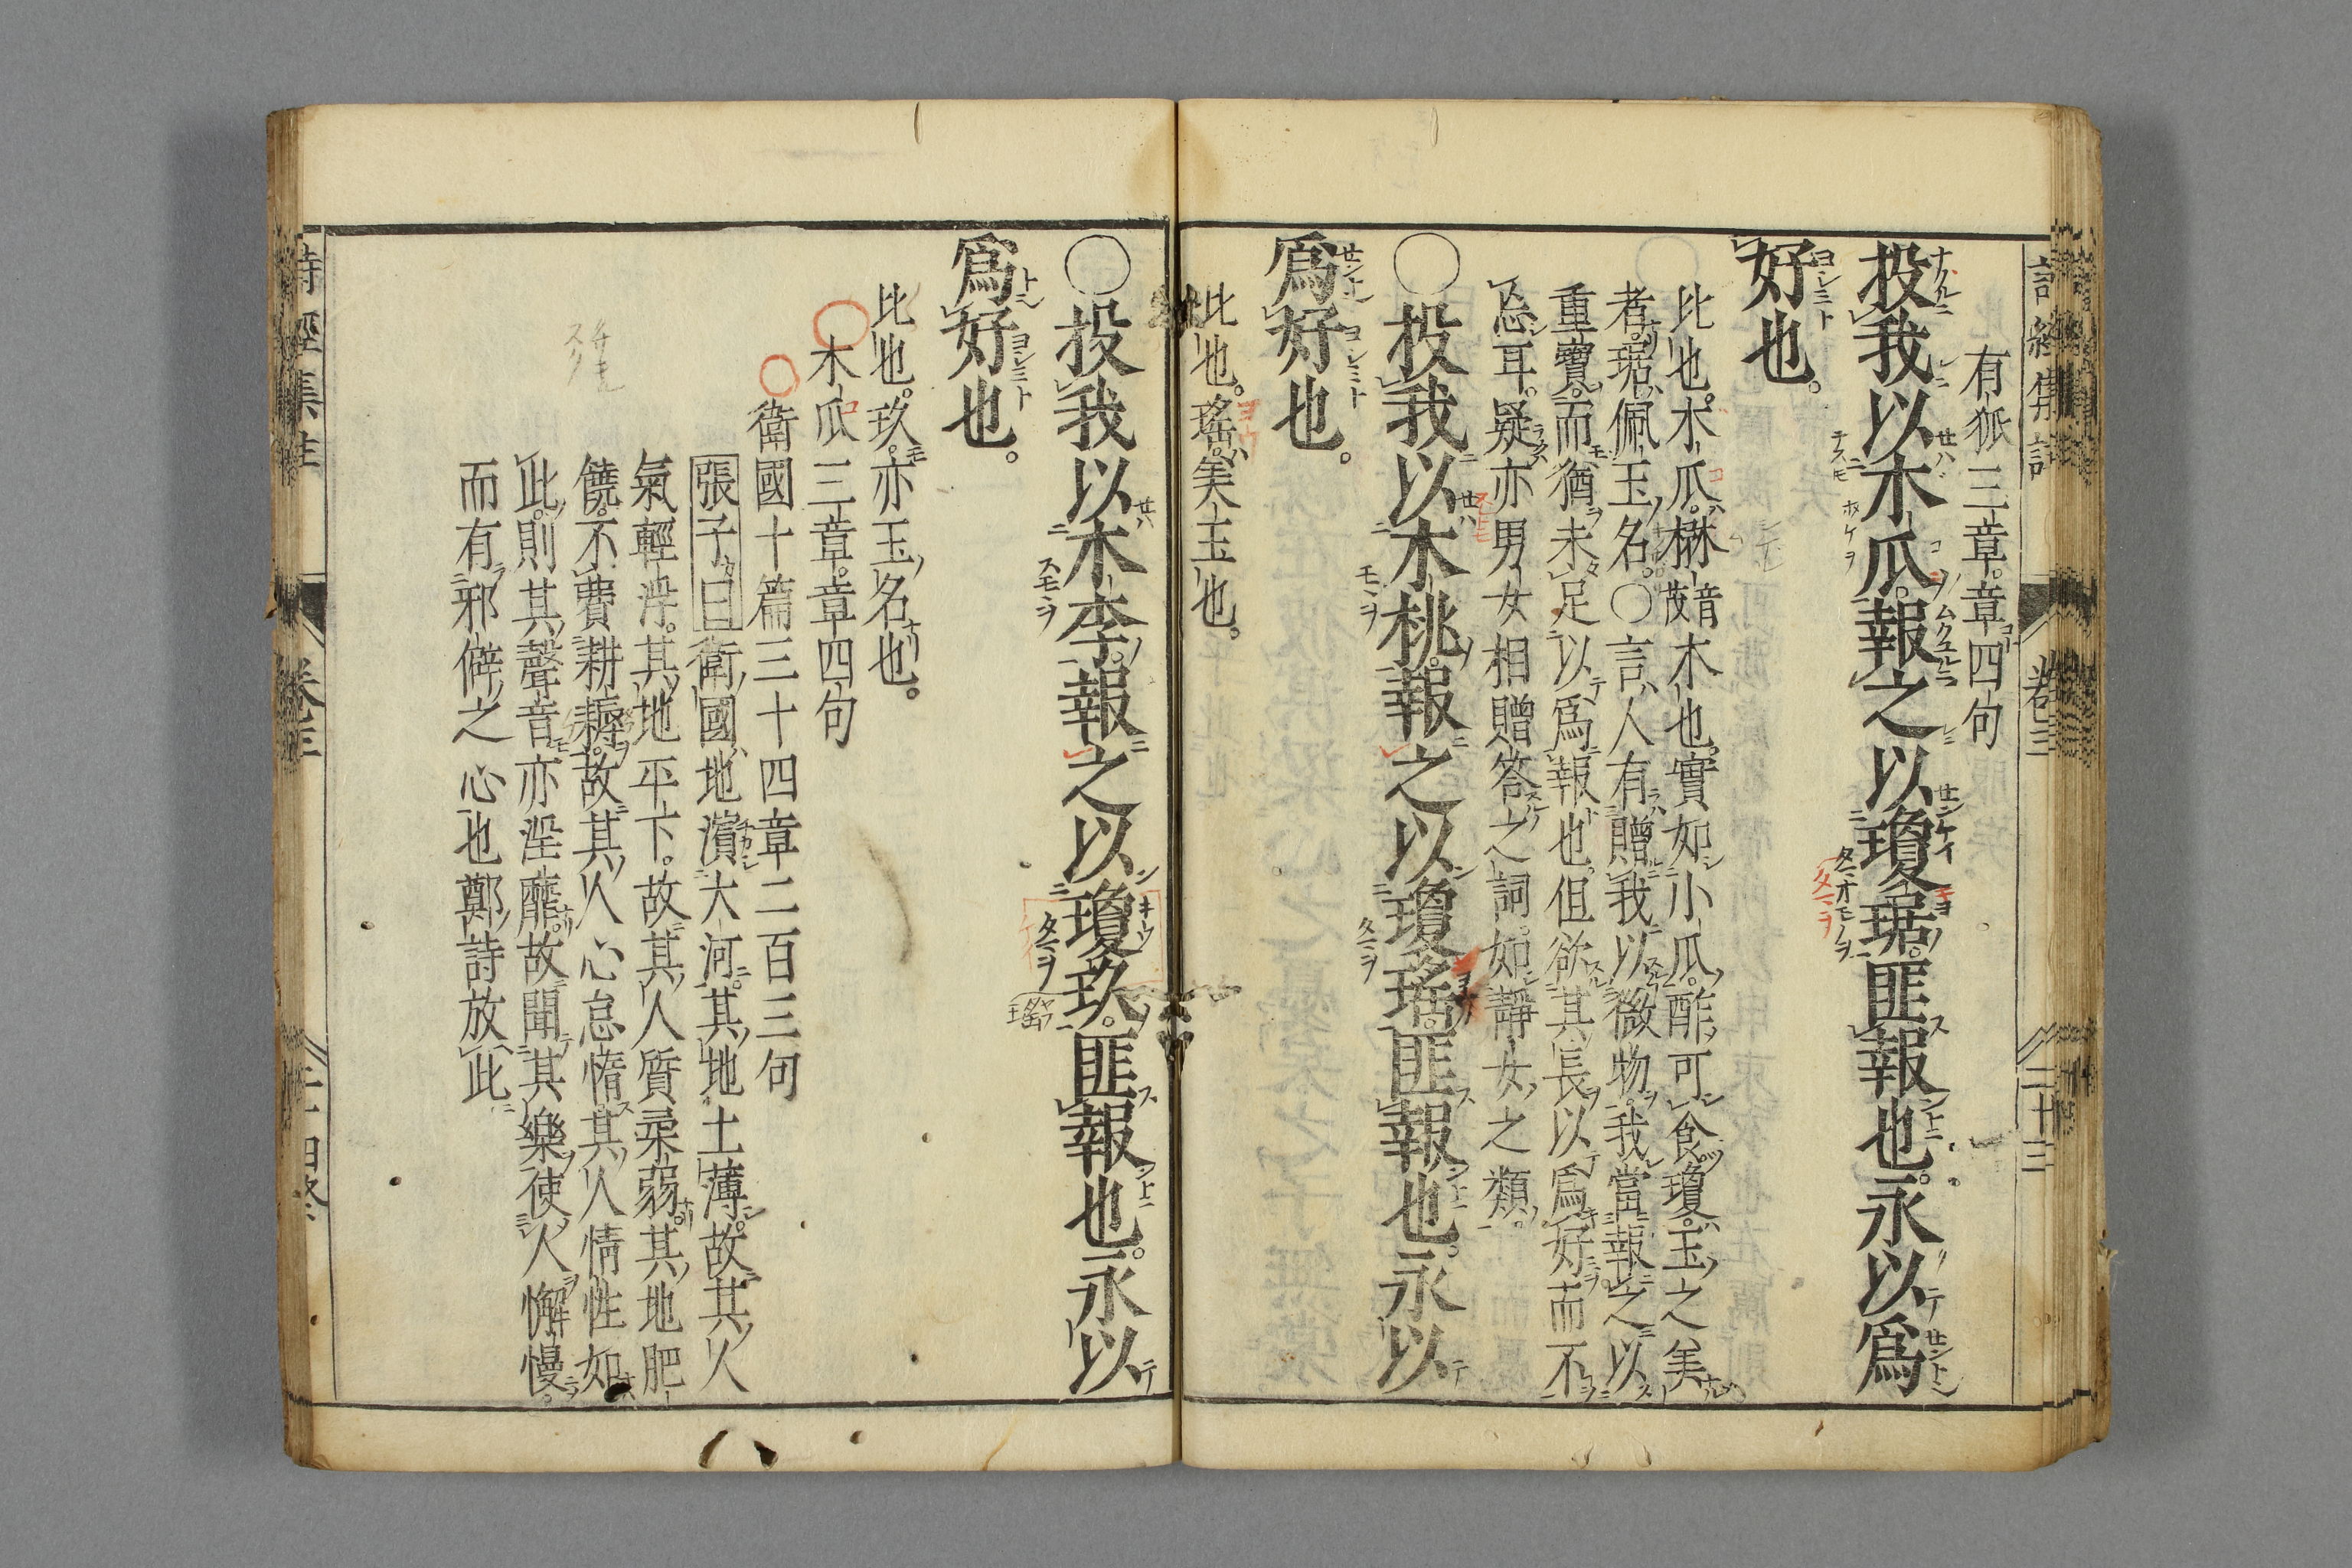 有狐三章章四句
投我以木瓜報之以瓊琚匪報也永以爲
好也。
比也木瓜楙音茂木也實如小瓜酢可食瓊玉之美
者琚佩玉名○言人有贈我以微物我當報之以
重寶而猶未足以爲報也但欲其長以爲好而不
忘耳疑亦男女相贈答之詞如靜女之類
○投我以木桃報之以瓊瑤匪報也永以
爲好也。
比也瑤美玉也。
卷三
二十三
○投我以木李報之以瓊玖匪報也永以
爲好也。
比也玖亦玉名也。
○木瓜三章章四句
○衛國十篇三十四章二百三句
張子曰衛國地濵大河其地土薄故其人
氣輕浮其地平下故其人質柔弱其地肥
饒不費耕耨故其人心怠惰其人情性如
此則其聲音亦淫靡故聞其樂使人懈慢
而有邪僻之心也鄭詩放此
詩經集註
卷三